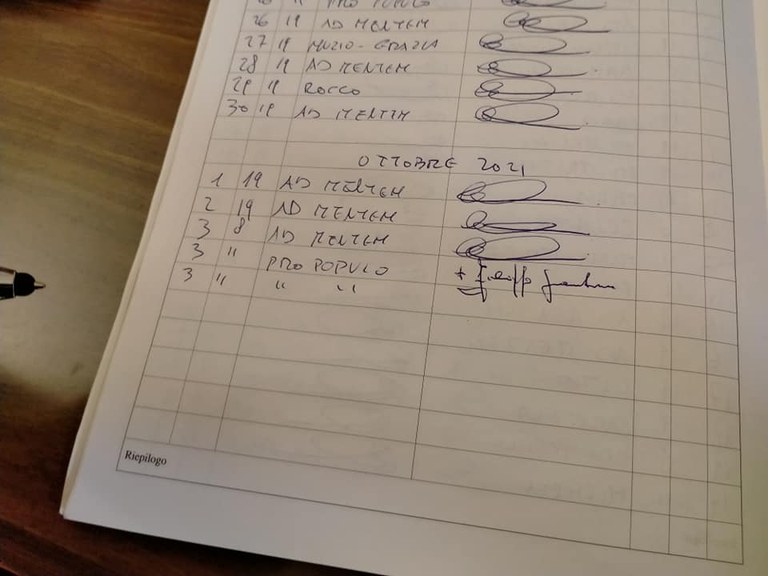 26 19 AD MENTEM
27 19 MUZIO-GRAZIA
28 19 AD MENTEM
29 19 ROCCO
30 19 AD MENTEM
OTTOBRE 2021
1 19 AD MENTEM
2 19 AD MENTEM
3 8 AD MENTEM
3 " PRO POPULO
3 " " "
Riepilogo